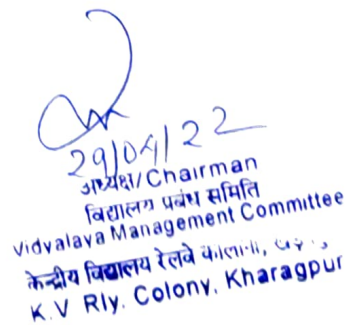 29/04/22
अध्यक्ष/Chairman
विद्यालय प्रबंध समिति
Vidyalaya Management Committee
केन्द्रीय विद्यालय रेलवे
K.V Rly. Colony, Kharagpur